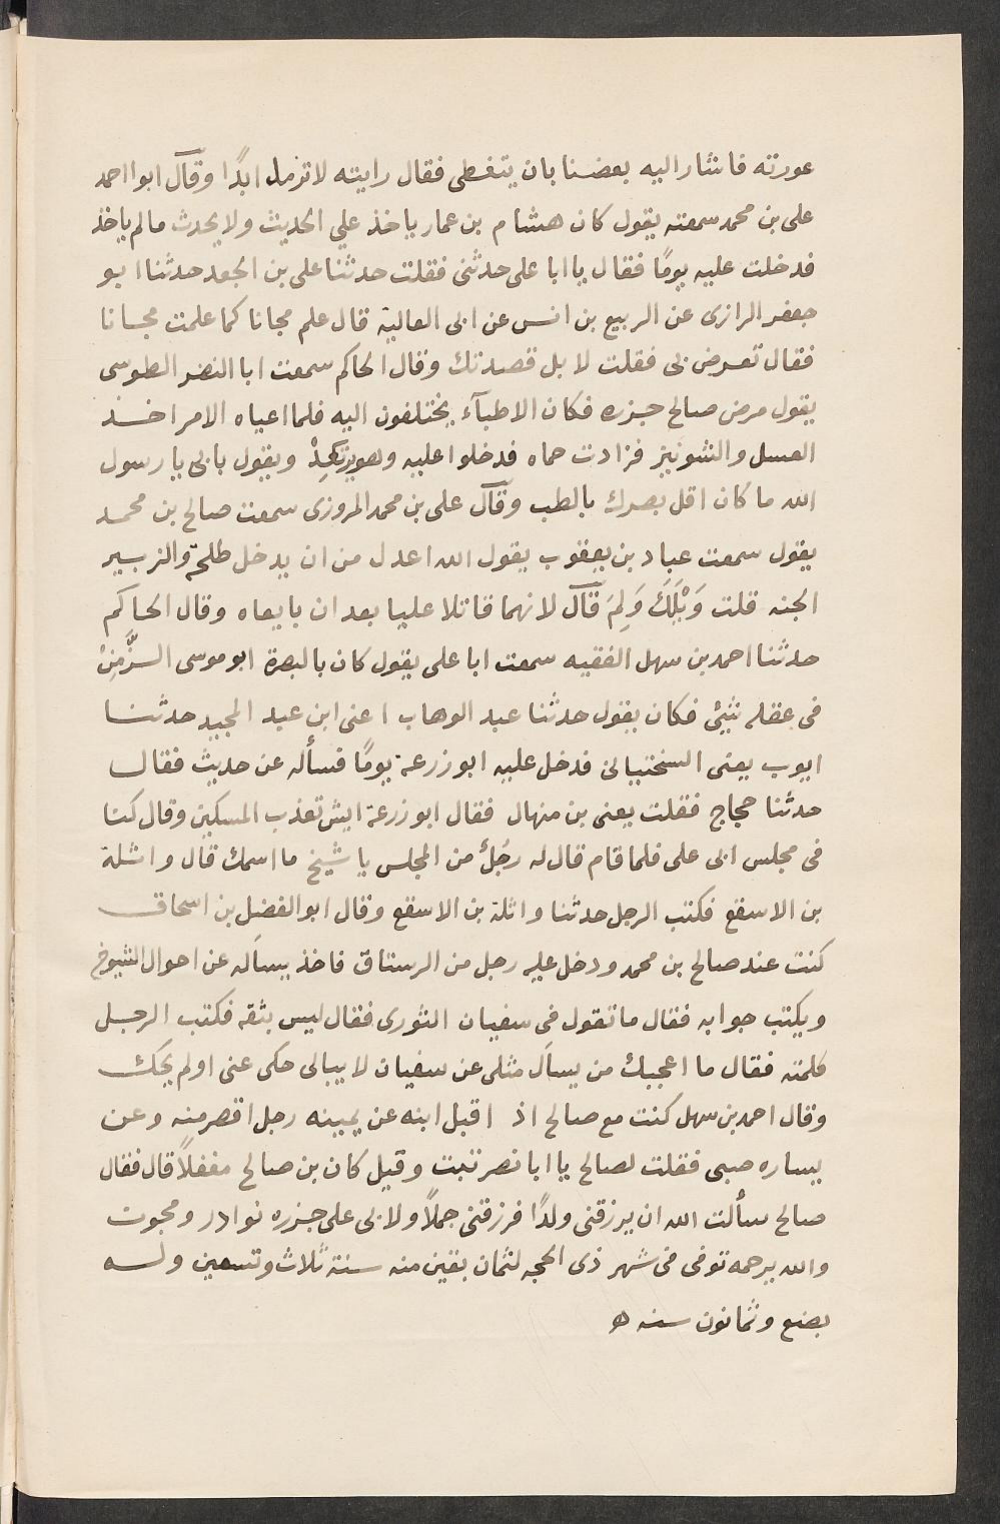 عورته فاشار اليه بعضنا بان يتغطى فقال رايته لا ترمد ابدًا وقال ابو احمد
على بن محمد سمعته يقول كان هشام بن عمار ياخذ علي الحديث ولا يحدث ما لم ياخذ
فدخلت عليه يومًا فقال يا ابا على حدثنى فقلت حدثنا على بن الجعد حدثنا ابو
جعفر الرازى عن الربيع بن انس عن ابى العالية قال علم مجانا كما علمت مجانا
فقال تعرض بى فقلت لا بل قصدتك وقال الحاكم سمعت ابا النضر الطوسى
يقول مرض صالح جزره فكان الاطبآء يختلفون اليه فلما اعياه الامر اخذ
العسل والشونيز فزادت حماه فدخلوا عليه وهو يرتعد ويقول بابى يا رسول
الله ما كان اقل بصرك بالطب وقال على بن محمد المروزى سمعت صالح بن محمد
يقول سمعت عباد بن يعقوب يقول الله اعدل من ان يدخل طلحة والزبير
الجنه قلت وَيْلَكَ وَلِمَ قال لانهما قاتلا عليا بعد ان بايعاه وقال الحاكم
حدثنا احمد بن سهل الفقيه سمعت ابا على يقول كان بالبصرة ابو موسى الزَّمِنْ
فى عقله شئ فكان يقول حدثنا عبد الوهاب اعنى ابن عبد المجيد حدثنا
ايوب يعنى السختيانى فدخل عليه ابو زرعة يومًا فسأله عن حديث فقال
حدثنا حجاج فقلت يعنى بن منهال فقال ابو زرعة ايش تعذب المسكين وقال كنا
فى مجلس ابى على فلما قام قال له رجل من المجلس يا شيخ ما اسمك قال واثلة
بن الاسقع فكتب الرجل حدثنا واثلة بن الاسقع وقال ابو الفضل بن اسحاق
كنت عند صالح بن محمد ودخل عليه رجل من الرستاق فاخذ يسآله عن احوال الشيوخ
ويكتب جوابه فقال ما تقول فى سفيان الثورى فقال ليس بثقه فكتب الرجل
فلمته فقال ما اعجبك من يسآل مثلى عن سفيان لا يبالى حكى عنى او لم يحك
وقال احمد بن سهل كنت مع صالح اذ اقبل ابنه عن يمينه رجل اقصر منه وعن
يساره صبى فقلت لصالح يا ابا نصر تبت وقيل كان بن صالح مغفلاً قال فقال
صالح سألت الله ان يرزقنى ولدًا فرزقنى جملاً ولابى على جزره نوادر ومجون
والله يرحمه توفى فى شهر ذى الحجه لثمان بقين منه سنة ثلاث وتسعين وله
بضع وثمانون سنه ه